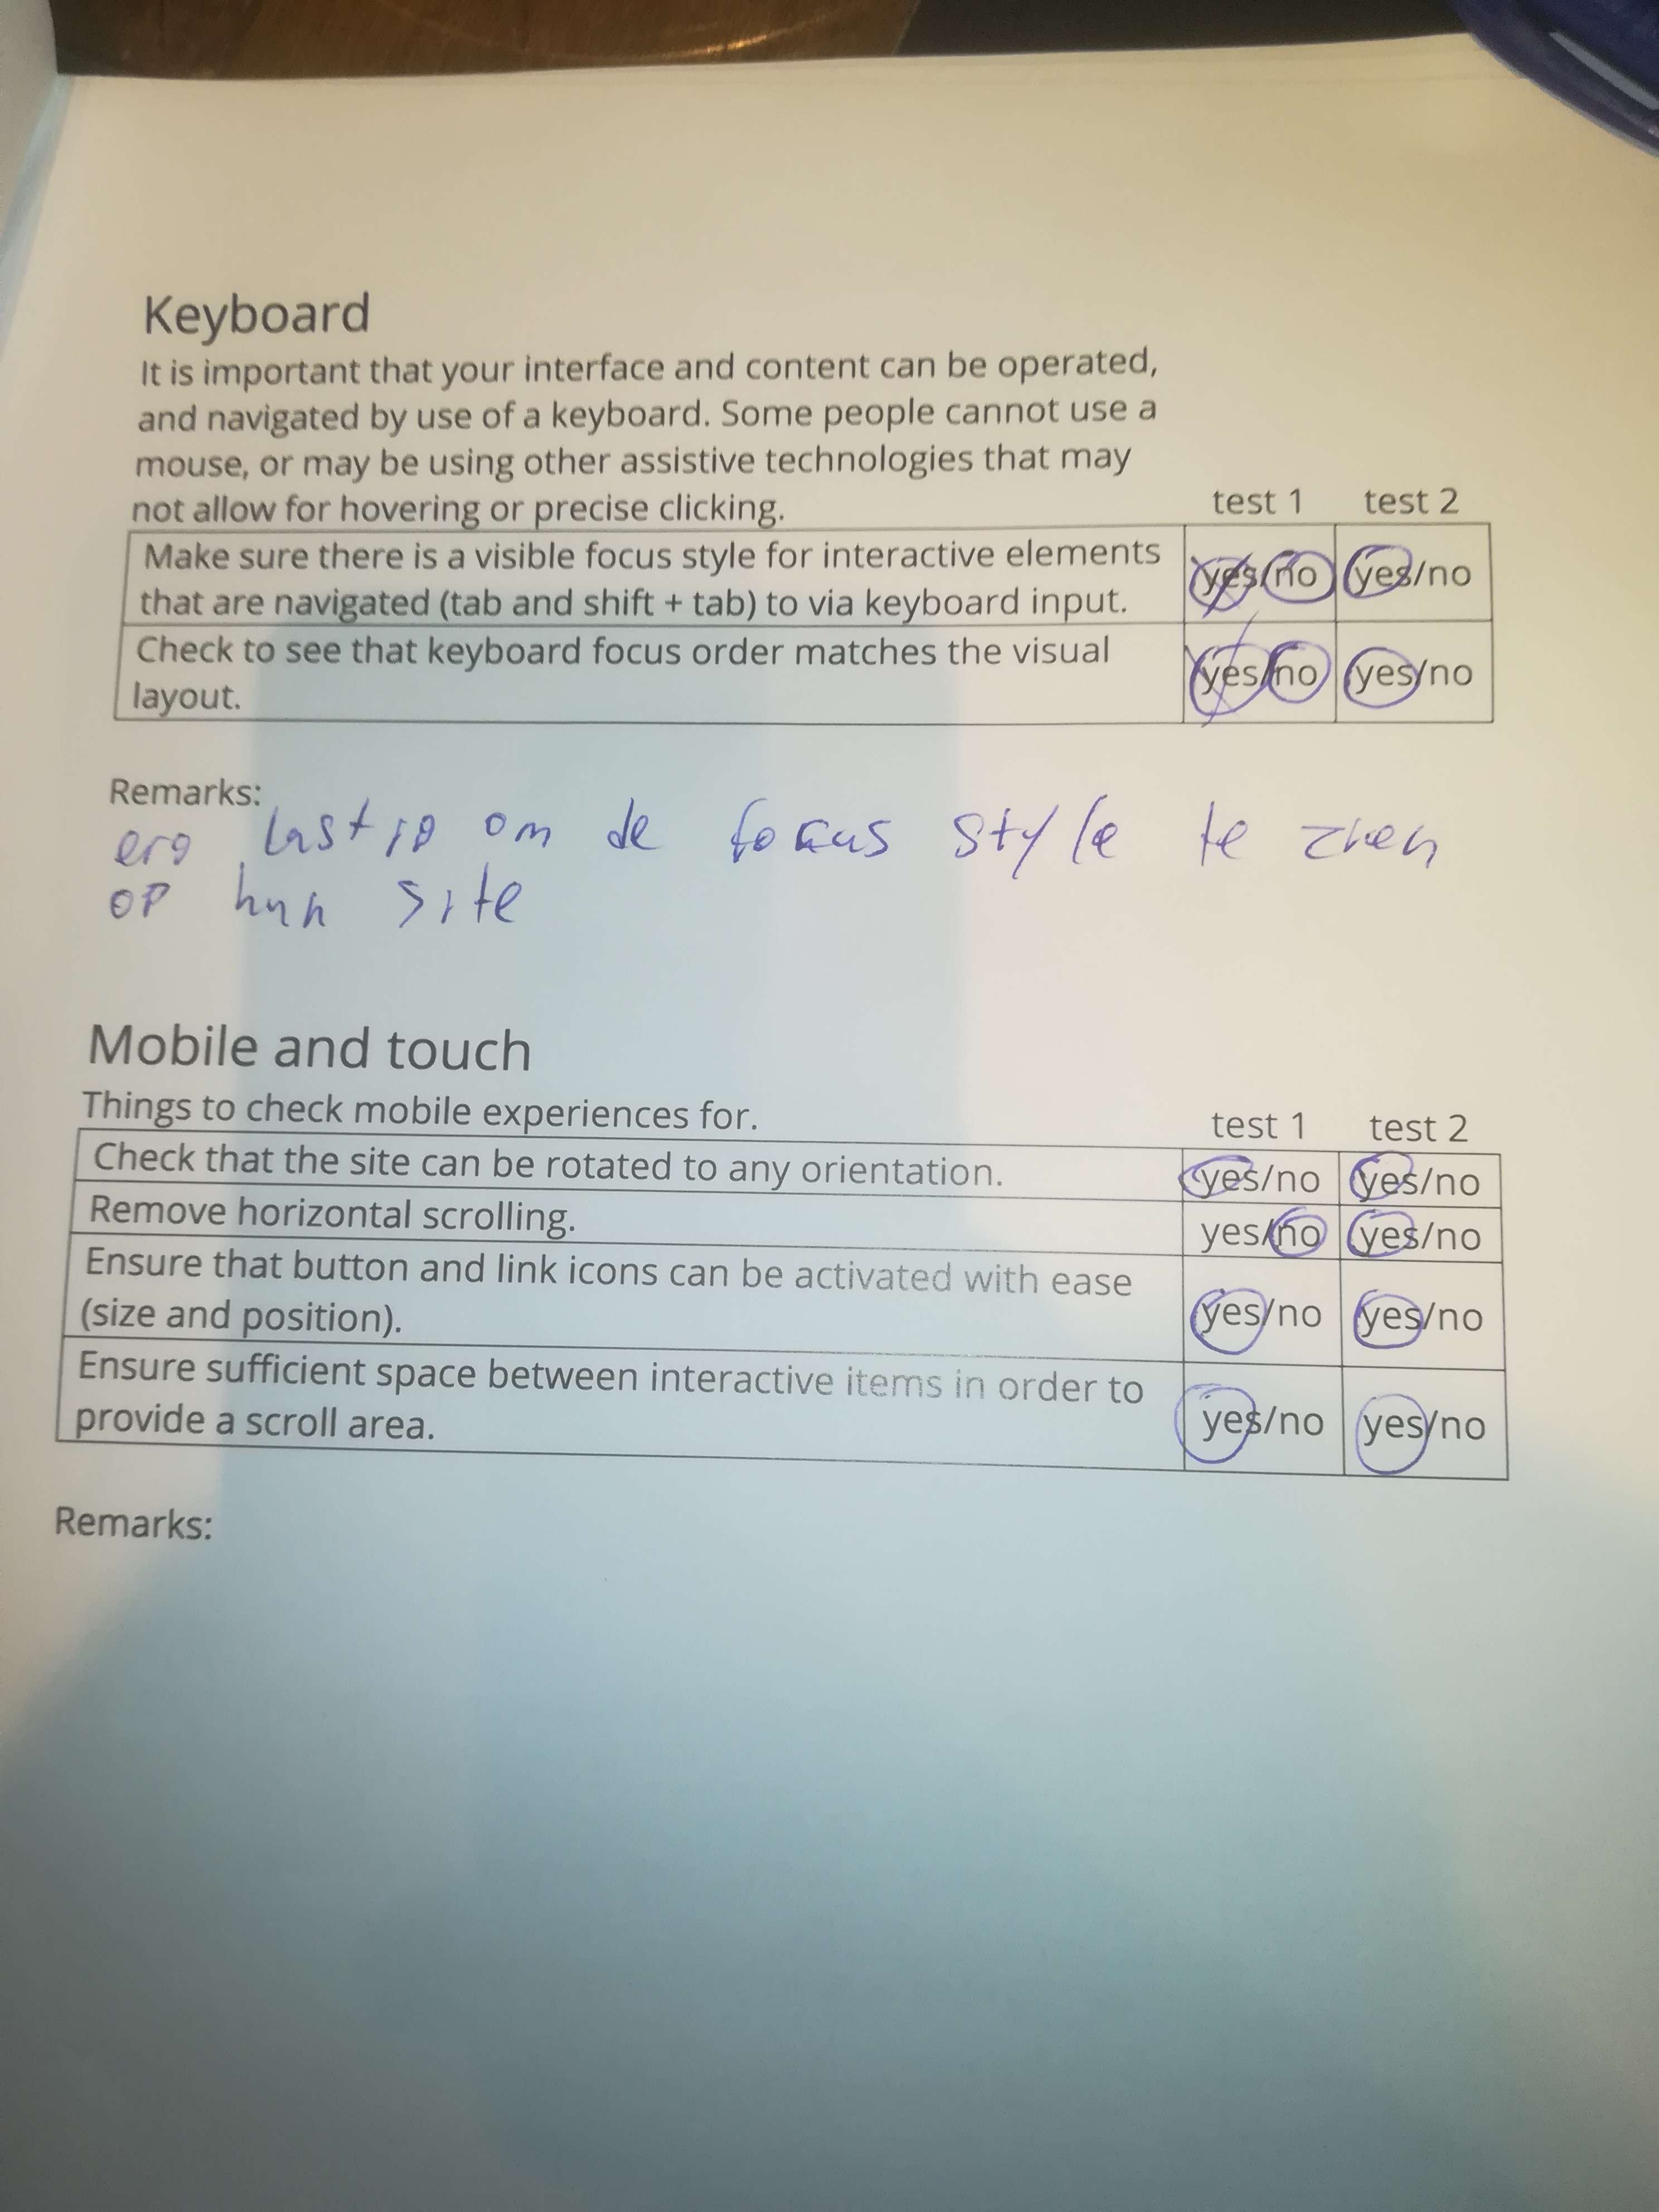 Keyboard
It is important that your interface and content can be operated,
and navigated by use of a keyboard. Some people cannot use a
mouse, or may be using other assistive technologies that may
not allow for hovering or precise clicking.
test 1 test 2
Make sure there is a visible focus style for interactive elements
that are navigated (tab and shift + tab) to via keyboard input.
yes/no yes/no
Check to see that keyboard focus order matches the visual
layout.
yes/no yes/no
Remarks:
erg lastig om de focus style te zien
op hun site
Mobile and touch
Things to check mobile experiences for.
test 1 test 2
Check that the site can be rotated to any orientation. yes/no yes/no
Remove horizontal scrolling. yes/no yes/no
Ensure that button and link icons can be activated with ease
(size and position).
yes/no yes/no
Ensure sufficient space between interactive items in order to
provide a scroll area.
yes/no yes/no
Remarks: